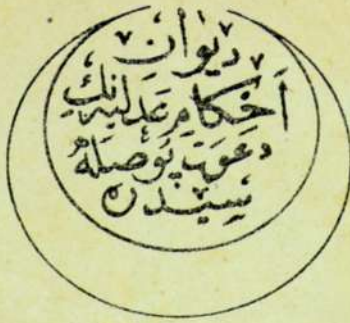 ديوان
احكام عدليه نك
دعوت پوصله
سيدر